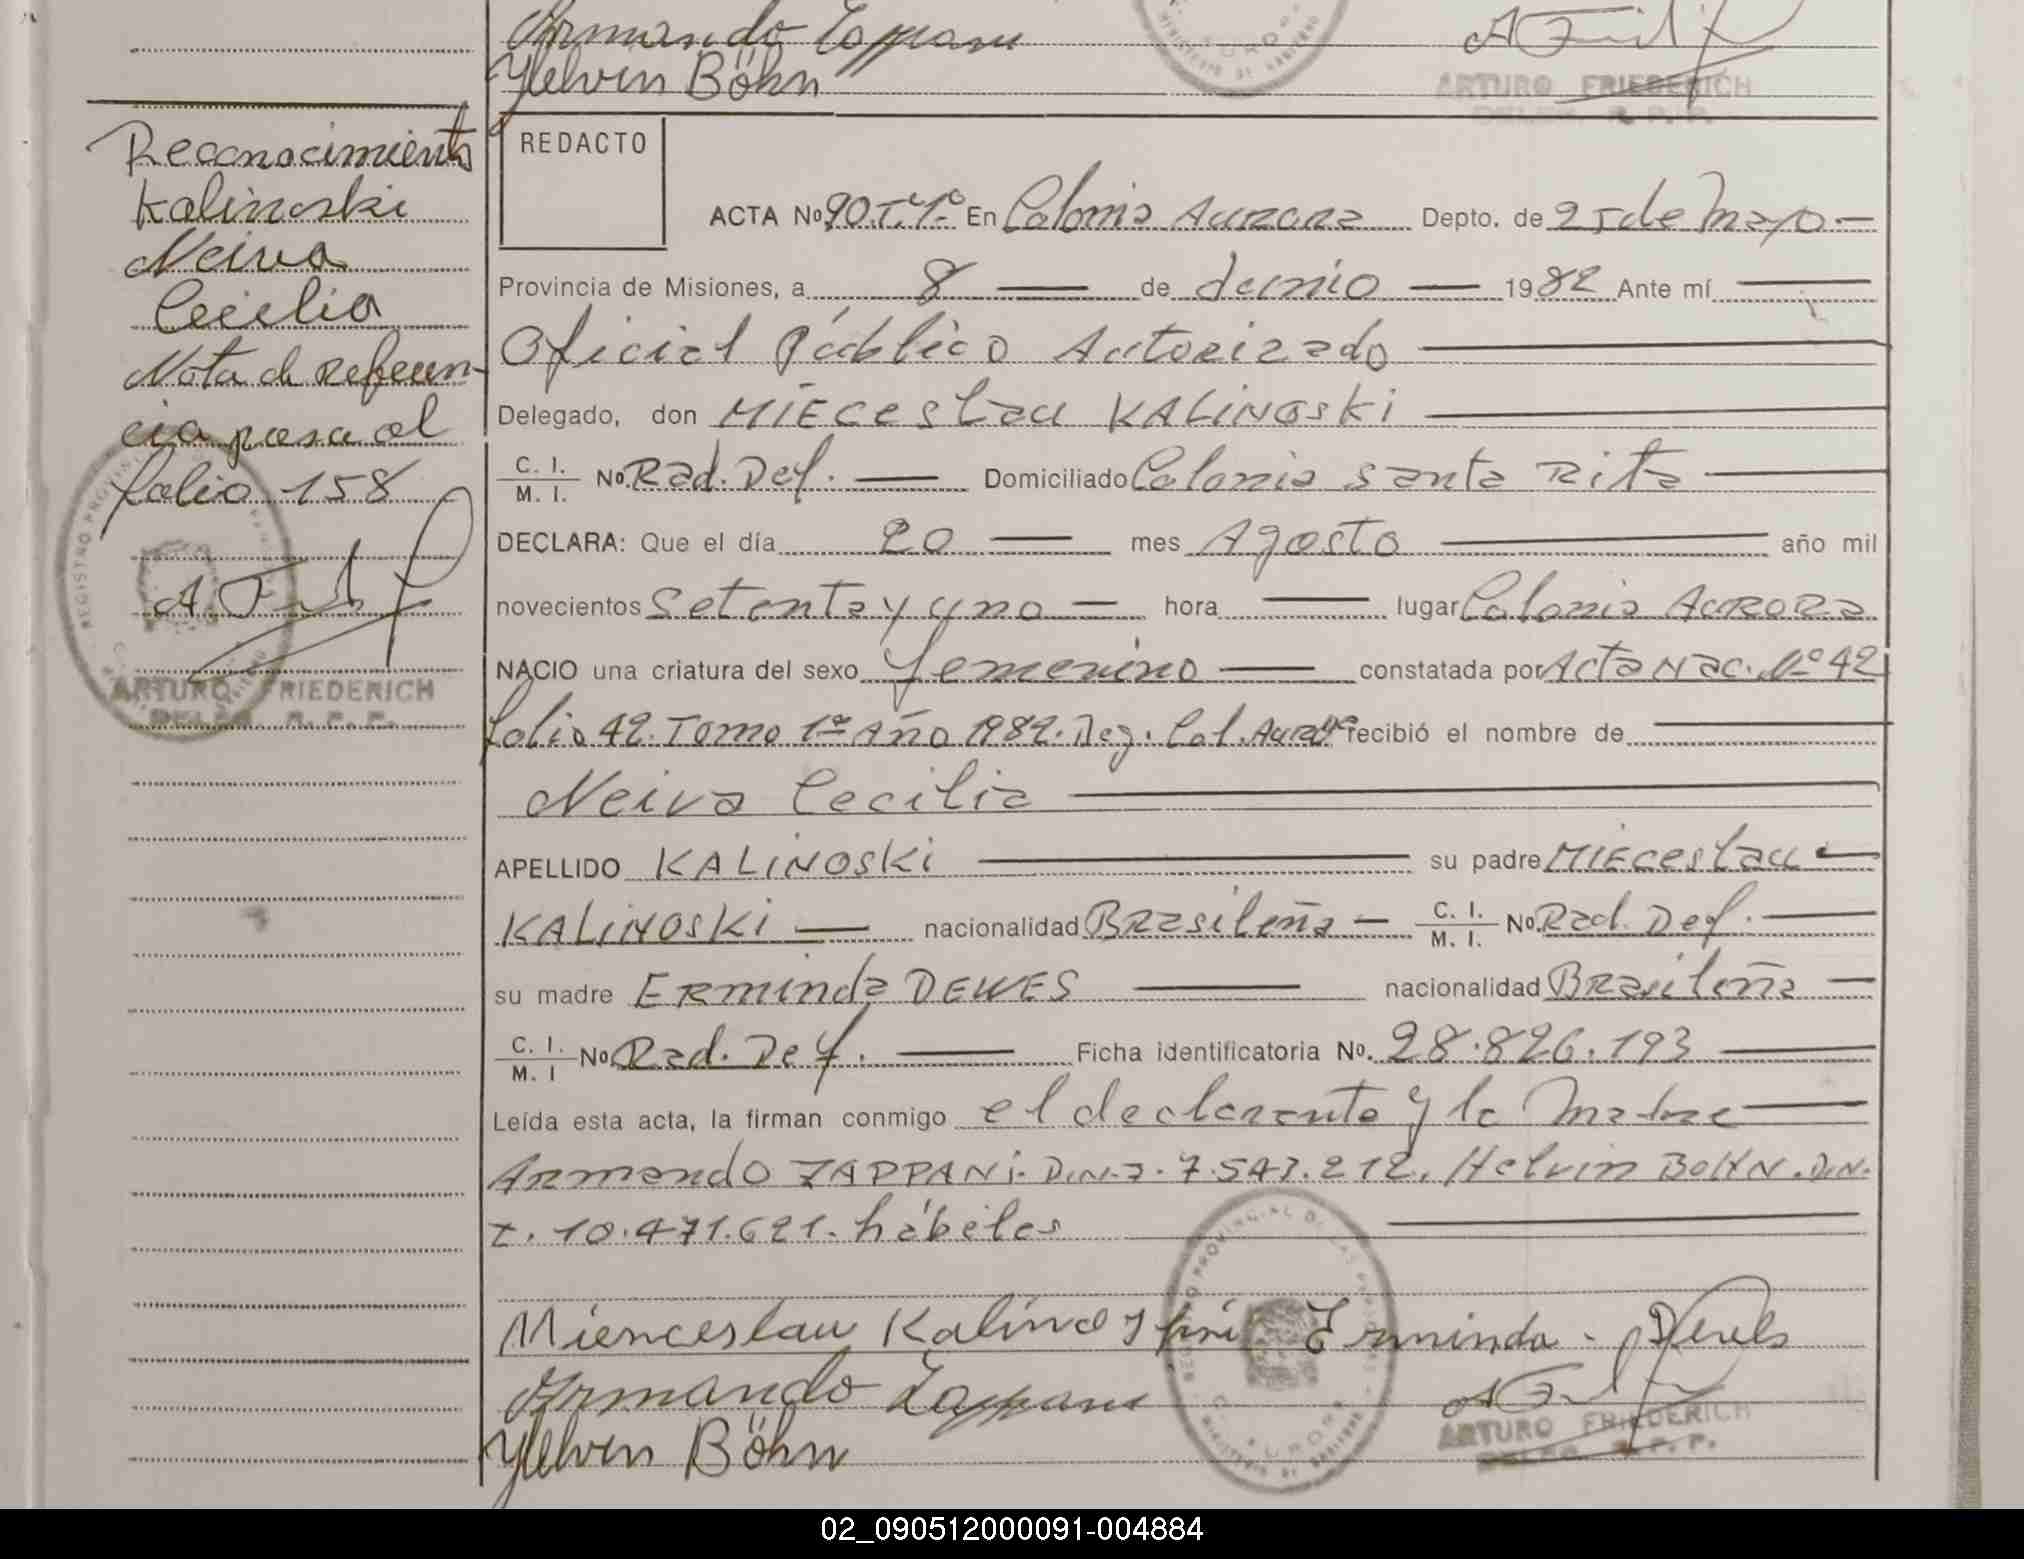 Armando Zappani
Helvin Böhn
ARTURO FRIEDERICH
DELEG. R. P. P.
Reconocimiento
Kalinoski
Neiva
Cecilia
Nota de referen-
cia pasa al
folio 158
ARTURO FRIEDERICH
DELEG. R. P. P.
REDACTO
ACTA No 90.T.1º En Colonia Aurora Depto. de 25 de Mayo.—
Provincia de Misiones, a 8 — de Junio — 1982 Ante mí —
Oficial Público Autorizado —
Delegado, don MIECESLau KALINOSKI —
C. I. / M. I. No. Rad. Def. — Domiciliado Colonia Santa Rita —
DECLARA: Que el día 20 — mes Agosto — año mil
novecientos Setenta y uno — hora — lugar Colonia Aurora
NACIO una criatura del sexo femenino — constatada por Acta Nac. Nº 42
folio 42. Tomo 1º Año 1982. Deg. Col. Aurora recibió el nombre de —
Neiva Cecilia —
APELLIDO KALINOSKI — su padre MIECESLau —
KALINOSKI — nacionalidad Brasileña — C. I. / M. I. No. Rad. Def. —
su madre Erminda DEWES — nacionalidad Brasileña —
C. I. / M. I No. Rad. Def. — Ficha identificatoria No. 28.826.193 —
Leída esta acta, la firman conmigo el declarante y la Madre —
Armando ZAPPANi. D.N.I. 7.543.212. Helvin BOHN. D.N.
I. 10.471.621. hábiles —
Mienceslau Kalinoski Erminda - Dewes
Armando Zappani
Helvin Böhn
ARTURO FRIEDERICH
DELEG. R. P. P.
02_090512000091-004884